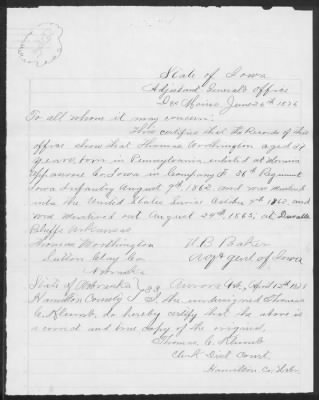 State of Iowa
Adjutant Generals Office
Des Moines June 26th 1876
To all whom it may concern:
This certifies that the Records of this
office show that Thomas Worthington aged 21
years, born in Pennsylvania enlisted at
Co Iowa in Company F 36th Regiment
Iowa Infantry August 9th 1862, and was mustered
into the United States Service October 4th 1862 and
was Mustered out August 24th 1865, at Duvalls
Bluffs Arkansas
Thomas Worthington
N. B. Baker
Sutton Clay Co
Adjt genl of Iowa
Nebraska
State of Nebraska
Hamilton County } SS.
Aurora Neb, April 15th
I the undersigned Thomas
C. Klumb, do hereby certify that the above is
a correct and true copy of the original.
Thomas C. Klumb
Clerk Dist Court
Hamilton Co. Nebr.